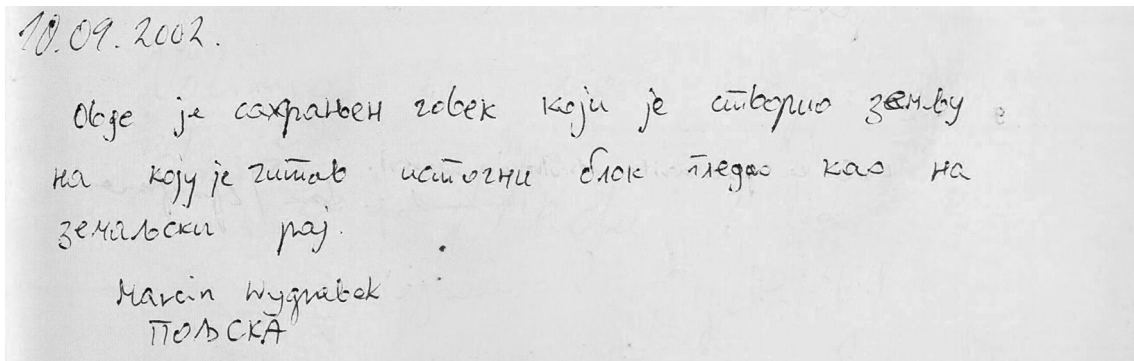 10.09.2002.
Овде је сахрањен човек који је створио земљу
на коју је читав источни блок гледао као на
земаљски рај.
Marcin Wygrabek
ПОЉСКА